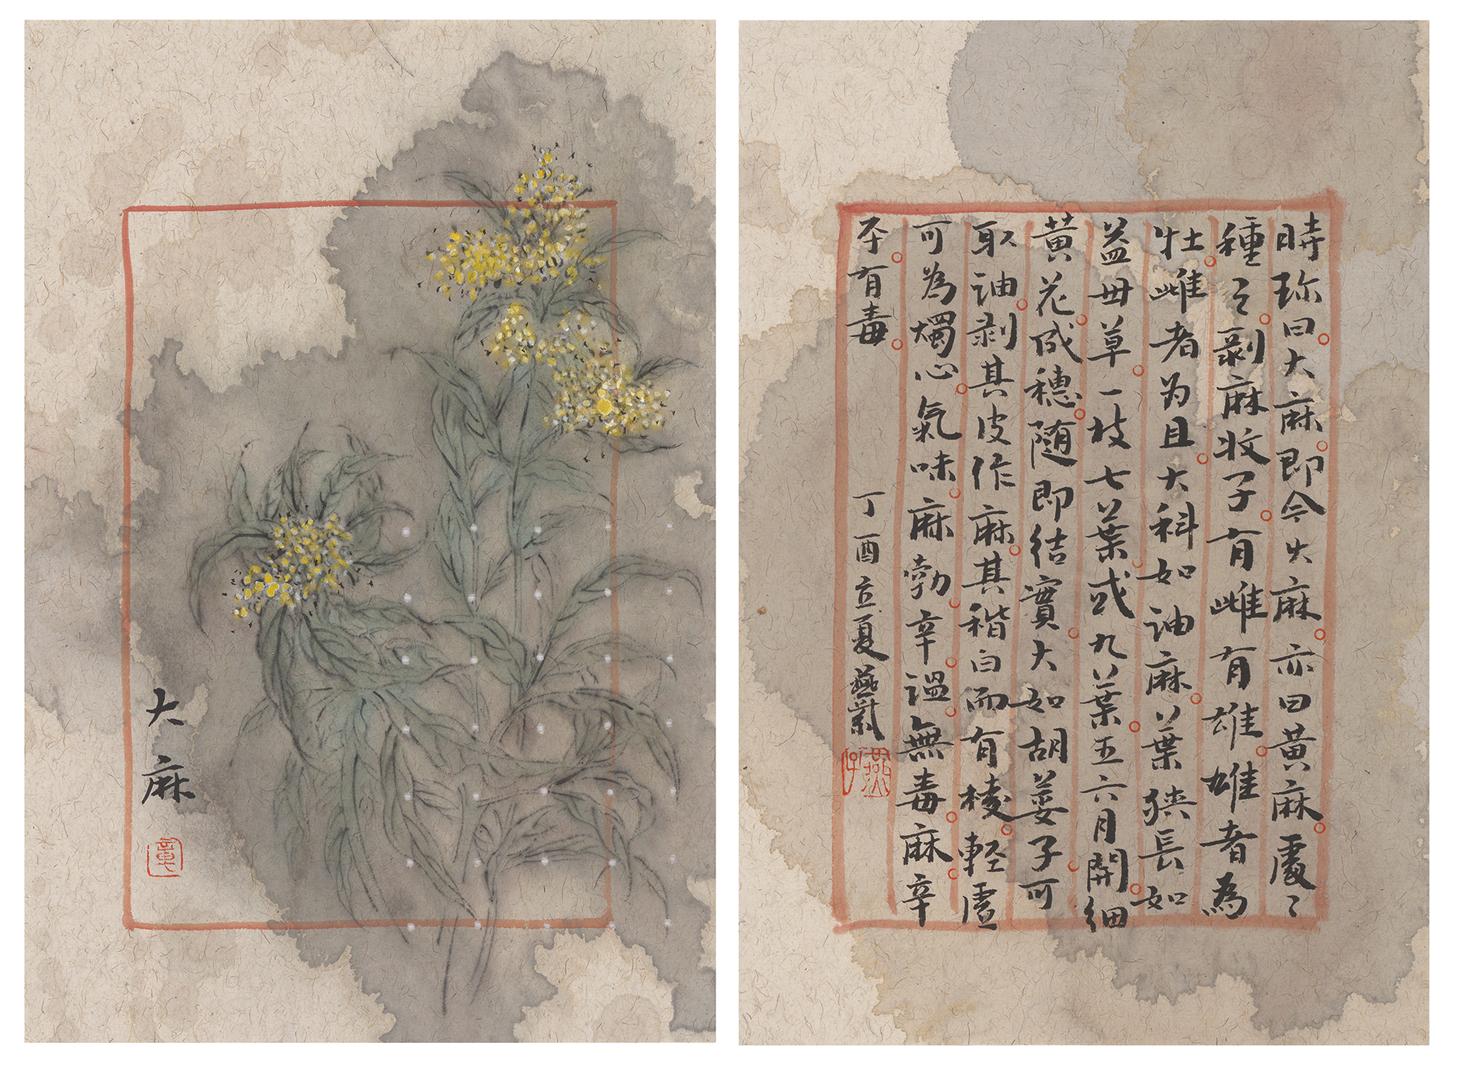 大麻
童
時珍曰大麻即今火麻亦曰黃麻處〻
種之剥麻收子有雌有雄雄者為
牡雌者为且大科如油麻葉狹長如
益母草一枝七葉或九葉五六月開細
黃花成穗随即結實大如胡荽子可
取油剥其皮作麻其稭白而有棱輕虛
可為燭心氣味麻勃辛温無毒麻辛
平有毒
丁酉立夏燕